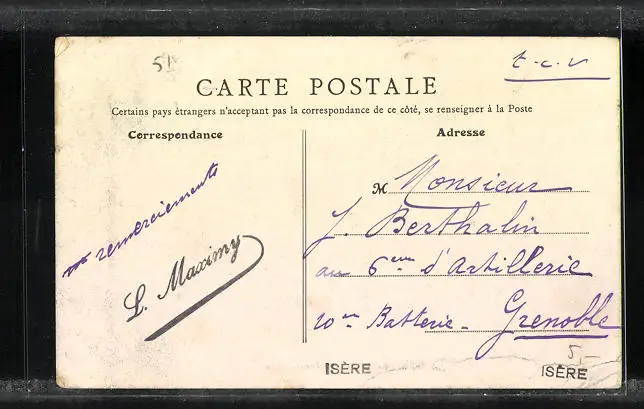 51
t.c.v
CARTE POSTALE
Certains pays étrangers n'acceptant pas la correspondance de ce côté, se renseigner à la Poste
Correspondance
remerciements
L. Maximy
Adresse
M Monsieur
J. Berthalin
au 6eme d'Artillerie
10me Batterie - Grenoble
5,-
ISÈRE
ISÈRE